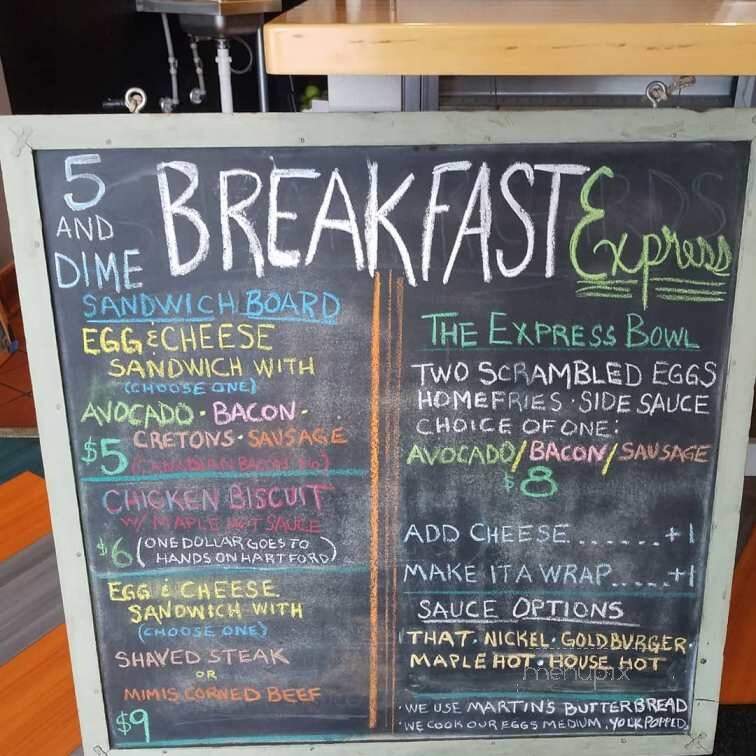 5
AND
DIME
BREAKFAST Express
SANDWICH BOARD
EGG & CHEESE
SANDWICH WITH
(CHOOSE ONE)
AVOCADO · BACON ·
$5 CRETONS · SAUSAGE
(CANADIAN BACON
CHICKEN BISCUIT
W/ MAPLE HOT SAUCE
$6 (ONE DOLLAR GOES TO
HANDS ON HARTFORD)
EGG & CHEESE
SANDWICH WITH
(CHOOSE ONE)
SHAVED STEAK
OR
MIMIS CORNED BEEF
$9
THE EXPRESS BOWL
TWO SCRAMBLED EGGS
HOMEFRIES · SIDE SAUCE
CHOICE OF ONE:
AVOCADO/BACON/SAUSAGE
$8
ADD CHEESE......+1
MAKE IT A WRAP.....+1
SAUCE OPTIONS
THAT · NICKEL · GOLDBURGER ·
MAPLE HOT · HOUSE HOT
menupix
· WE USE MARTIN'S BUTTERBREAD
· WE COOK OUR EGGS MEDIUM, YOLK POPPED.